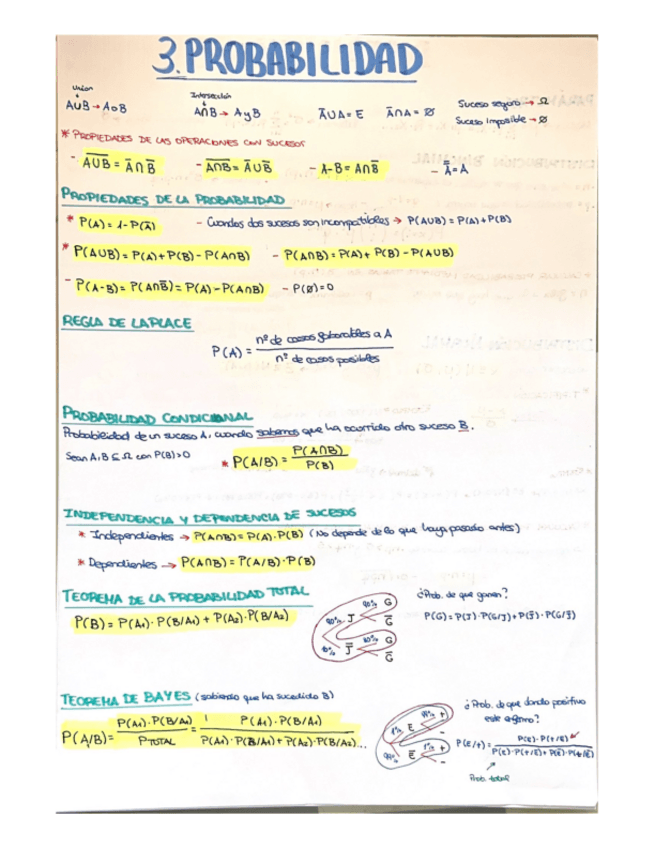 3. PROBABILIDAD
Unión
A∪B → A o B
Intersección
A∩B → A y B
A̅∪A = E
A̅∩A = Ø
Suceso seguro → Ω
Suceso imposible → Ø
* PROPIEDADES DE LAS OPERACIONES CON SUCESOS
- \overline{A∪B} = A̅∩B̅
- \overline{A∩B} = A̅∪B̅
- A-B = A∩B̅
- A̿ = A
PROPIEDADES DE LA PROBABILIDAD
* P(A) = 1 - P(A̅)
- Cuando dos sucesos son incompatibles → P(A∪B) = P(A) + P(B)
* P(A∪B) = P(A) + P(B) - P(A∩B)
- P(A∩B) = P(A) + P(B) - P(A∪B)
- P(A-B) = P(A∩B̅) = P(A) - P(A∩B)
- P(Ø) = 0
REGLA DE LAPLACE
P(A) = nº de casos favorables a A / nº de casos posibles
PROBABILIDAD CONDICIONAL
Probabilidad de un suceso A, cuando sabemos que ha ocurrido otro suceso B.
Sean A, B ⊆ Ω con P(B) > 0
* P(A/B) = P(A∩B) / P(B)
INDEPENDENCIA Y DEPENDENCIA DE SUCESOS
* Independientes → P(A∩B) = P(A)·P(B) (No depende de lo que haya pasado antes)
* Dependientes → P(A∩B) = P(A/B)·P(B)
TEOREMA DE LA PROBABILIDAD TOTAL
P(B) = P(A₁)·P(B/A₁) + P(A₂)·P(B/A₂)
J G G̅
J̅ G G̅
¿Prob. de que ganen?
P(G) = P(J)·P(G/J) + P(J̅)·P(G/J̅)
TEOREMA DE BAYES (sabiendo que ha sucedido B)
P(A/B) = P(A₁)·P(B/A₁) / PTOTAL = P(A₁)·P(B/A₁) / P(A₁)·P(B/A₁) + P(A₂)·P(B/A₂)...
E + -
E̅ 1% + -
¿Prob. de que dando positivo
este enfermo?
P(E/+) = P(E)·P(+/E) / P(E)·P(+/E) + P(E̅)·P(+/E̅)
Prob. total